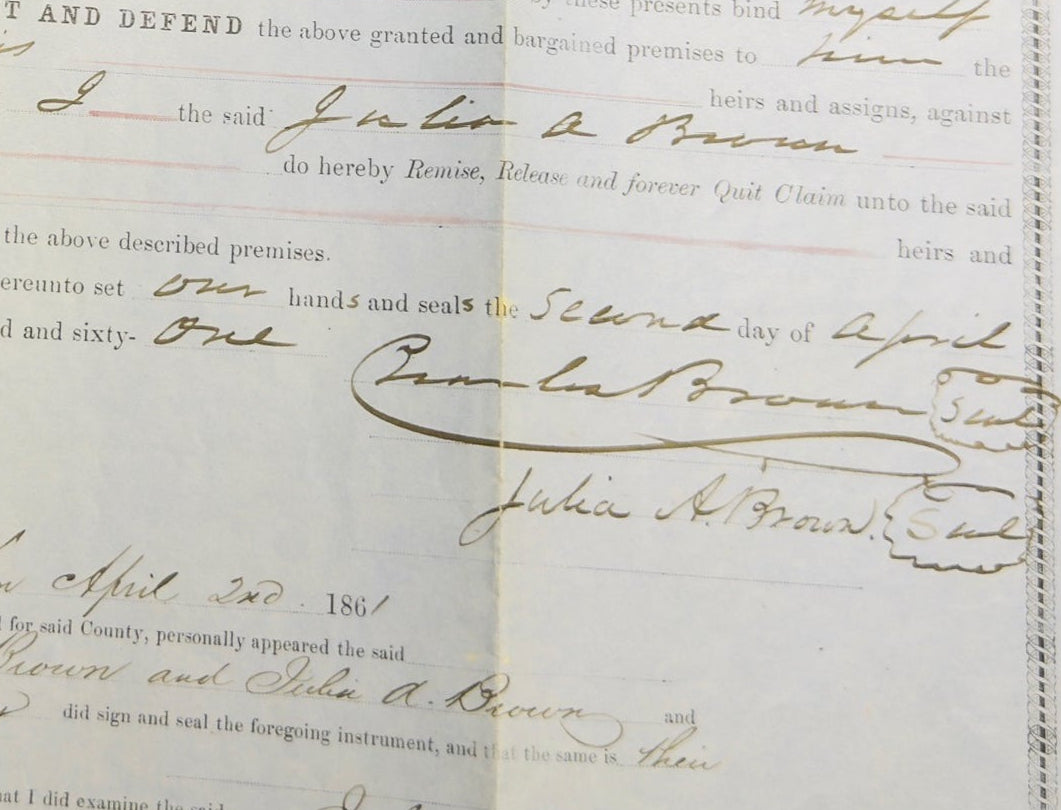 by these presents bind myself
T AND DEFEND the above granted and bargained premises to him the
heirs and assigns, against
I the said Julia A Brown
do hereby Remise, Release and forever Quit Claim unto the said
heirs and
the above described premises.
ereunto set our hands and seals the Second day of April
d and sixty- One
Charles Brown Seal
Julia A. Brown. Seal
April 2nd . 1861
for said County, personally appeared the said
Brown and Julia A. Brown and
did sign and seal the foregoing instrument, and that the same is their
hat I did examine the said